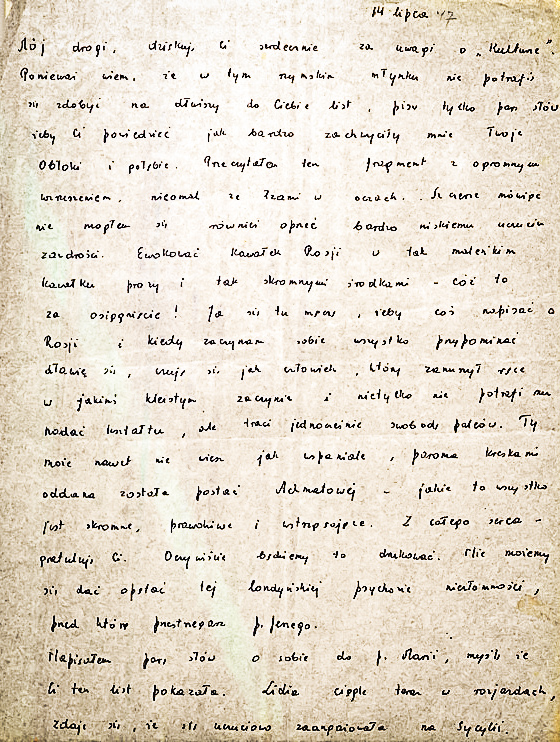 14 lipca 47
Mój drogi, dziękuję Ci serdecznie za uwagi o „Kulturze".
Ponieważ wiem, że w tym rzymskim młynku nie potrafię
się zdobyć na dłuższy do Ciebie list, piszę tylko parę słów
żeby Ci powiedzieć jak bardzo zachwyciły mnie Twoje
Obłoki i gołębie. Przeczytałem ten fragment z ogromnym
wzruszeniem, nieomal ze łzami w oczach. Szczerze mówiąc
nie mogłem się również oprzeć bardzo niskiemu uczuciu
zazdrości. Ewokować kawałek Rosji w tak maleńkim
kawałku prozy i tak skromnymi środkami – cóż to
za osiągnięcie! Ja się tu męczę, żeby coś napisać o
Rosji i kiedy zaczynam sobie wszystko przypominać
dławię się, czuję się jak człowiek, który zanurzył ręce
w jakimś kleistym zaczynie i nietylko nie potrafi mu
nadać kształtu, ale traci jednocześnie swobodę palców. Ty
może nawet nie wiesz jak wspaniale, paroma kreskami
oddana została postać Achmatowej – jakie to wszystko
jest skromne, prawdziwe i wstrząsające. Z całego serca –
gratuluję Ci. Oczywiście będziemy to drukować. Nie możemy
się dać opętać tej londyńskiej psychozie niezłomności,
przed którą przestrzegasz p. Jerzego.
Napisałem parę słów o sobie do p. Marii, myślę że
Ci ten list pokazała. Lidia ciągle teraz w rozjazdach,
zdaje się, że się uczuciowo zaangażowała na Sycylii.